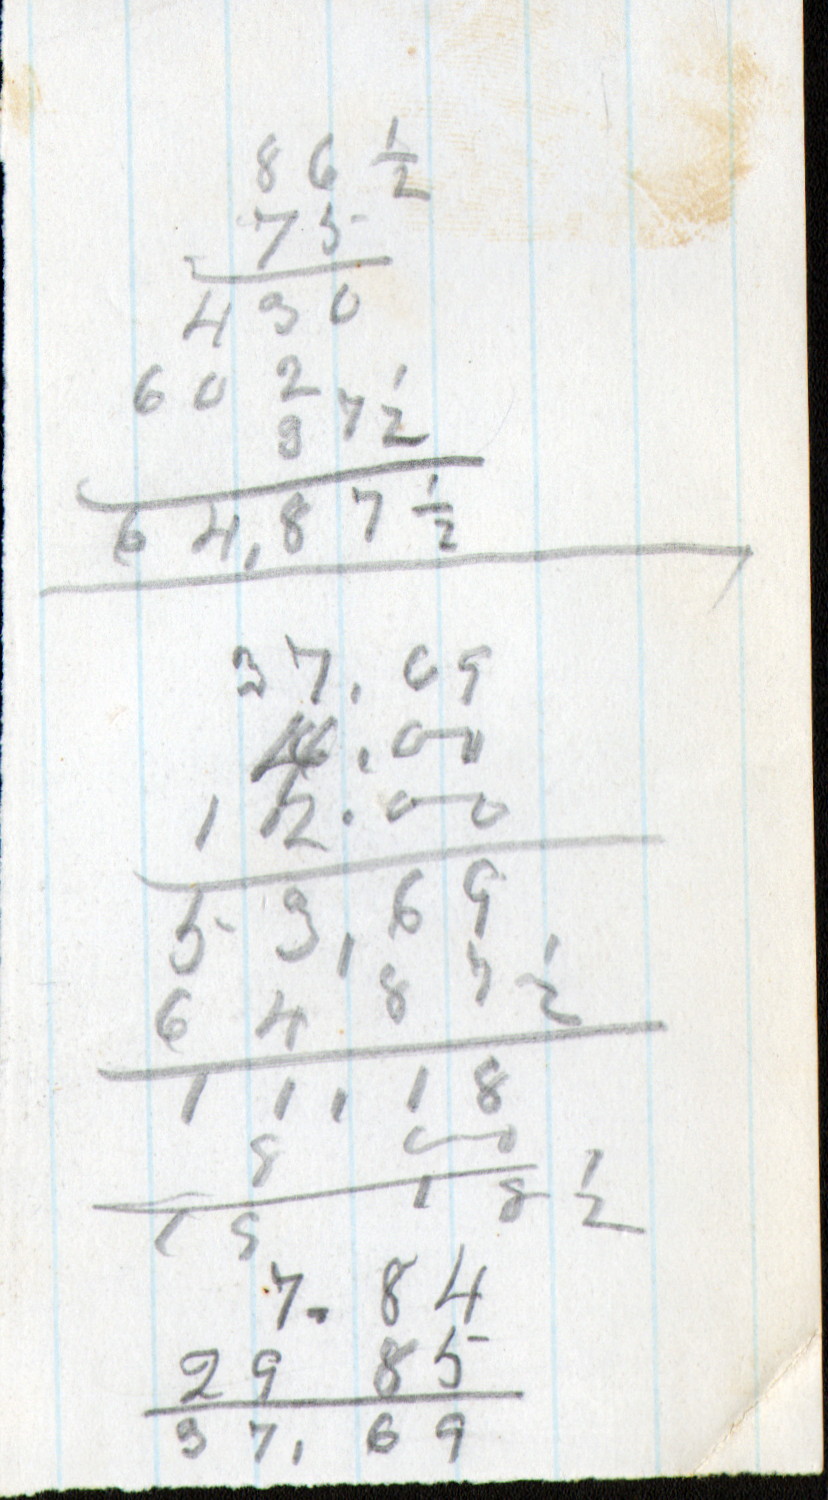 86 1/2
75
430
602
37 1/2
64,87 1/2
37.09
.00
12.00
53,69
64 87 1/2
11,18
8 00
19 18 1/2
7.84
29 85
37,69